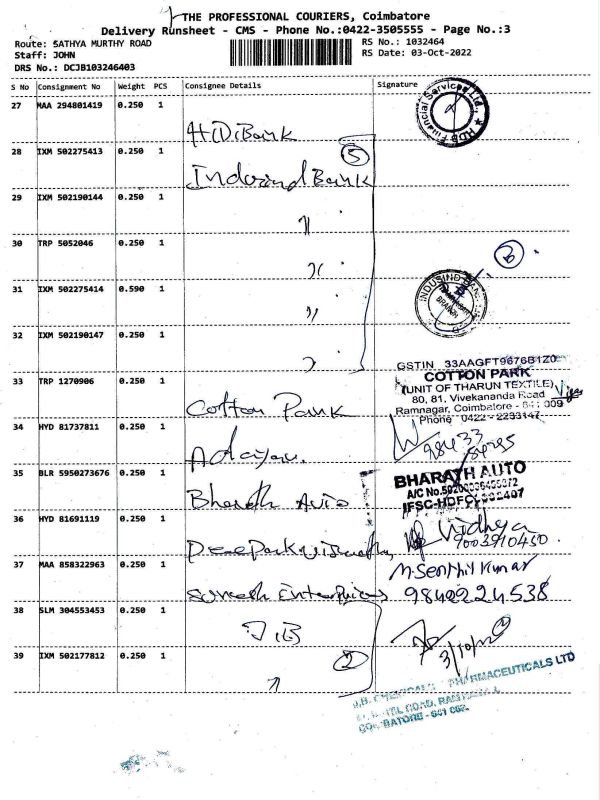 THE PROFESSIONAL COURIERS, Coimbatore
Delivery Runsheet - CMS - Phone No.:0422-3505555 - Page No.:3
Route: SATHYA MURTHY ROAD
RS No.: 1032464
Staff: JOHN
RS Date: 03-Oct-2022
DRS No.: DCJB103246403
S No Consignment No Weight PCS Consignee Details Signature
27 MAA 294801419 0.250 1
HDB Financial Services Ltd.,
28 IXM 502275413 0.250 1 Indusind Bank 5
29 IXM 502190144 0.250 1 "
30 TRP 5052046 0.250 1 "
31 IXM 502275414 0.590 1 "
INDUSIND BANK
BRANCH
32 IXM 502190147 0.250 1
GSTIN 33AAGFT9676B1Z0
COTTON PARK
(UNIT OF THARUN TEXTILE)
80, 81, Vivekananda Road
Ramnagar, Coimbatore - 641 009
Phone 0422 - 2233147
33 TRP 1270906 0.250 1 Cotton Park
34 HYD 81737811 0.250 1
98433
35 BLR 5950273676 0.250 1 Bharath Auto
BHARATH AUTO
36 HYD 81691119 0.250 1
Vidhya
9003910450
37 MAA 858322963 0.250 1 Suresh Enterprices
M. Senthil Kumar
9842224538
38 SLM 304553453 0.250 1 J.B
3/10/22
39 IXM 502177812 0.250 1 " 2
J.B. CHEMICALS PHARMACEUTICALS LTD